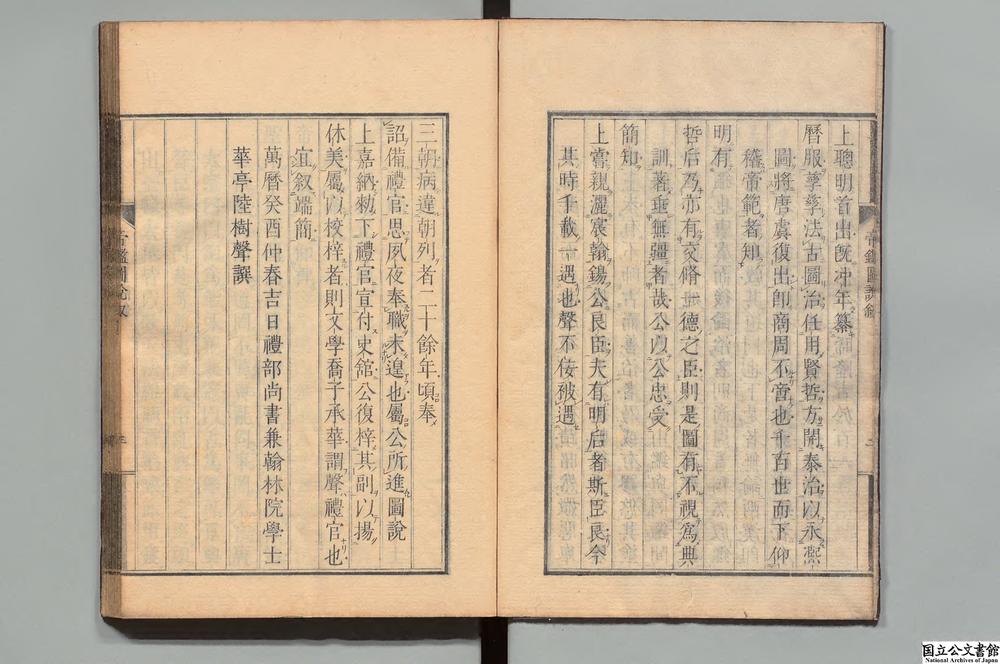 上聰明首出旣冲年纂
曆服孳孳法古圖治任用賢哲方開泰治以永凞
圖將唐虞復出卽商周不啻也千百世而下仰
稽帝範者知
明有
哲后乃亦有交脩
德之臣則是圖有不視爲典
訓著垂無疆者哉公以公忠受
簡知
上賫親灑宸翰錫公良臣夫有明后者斯臣良今
其時千載一遇也聲不佞被遇
三朝病違朝列者二十餘年頃奉
詔備禮官思夙夜奉職未遑也屬公所進圖說
上嘉納勑下禮官宣付史舘公復梓其副以揚
休美屬以校梓者則文學喬子承華謂聲禮官也
宜叙端簡
萬曆癸酉仲春吉日禮部尚書兼翰林院學士
華亭陸樹聲譔
帝鑑圖說叙
帝鑑圖說叙
二
三
国立公文書館
National Archives of Japan